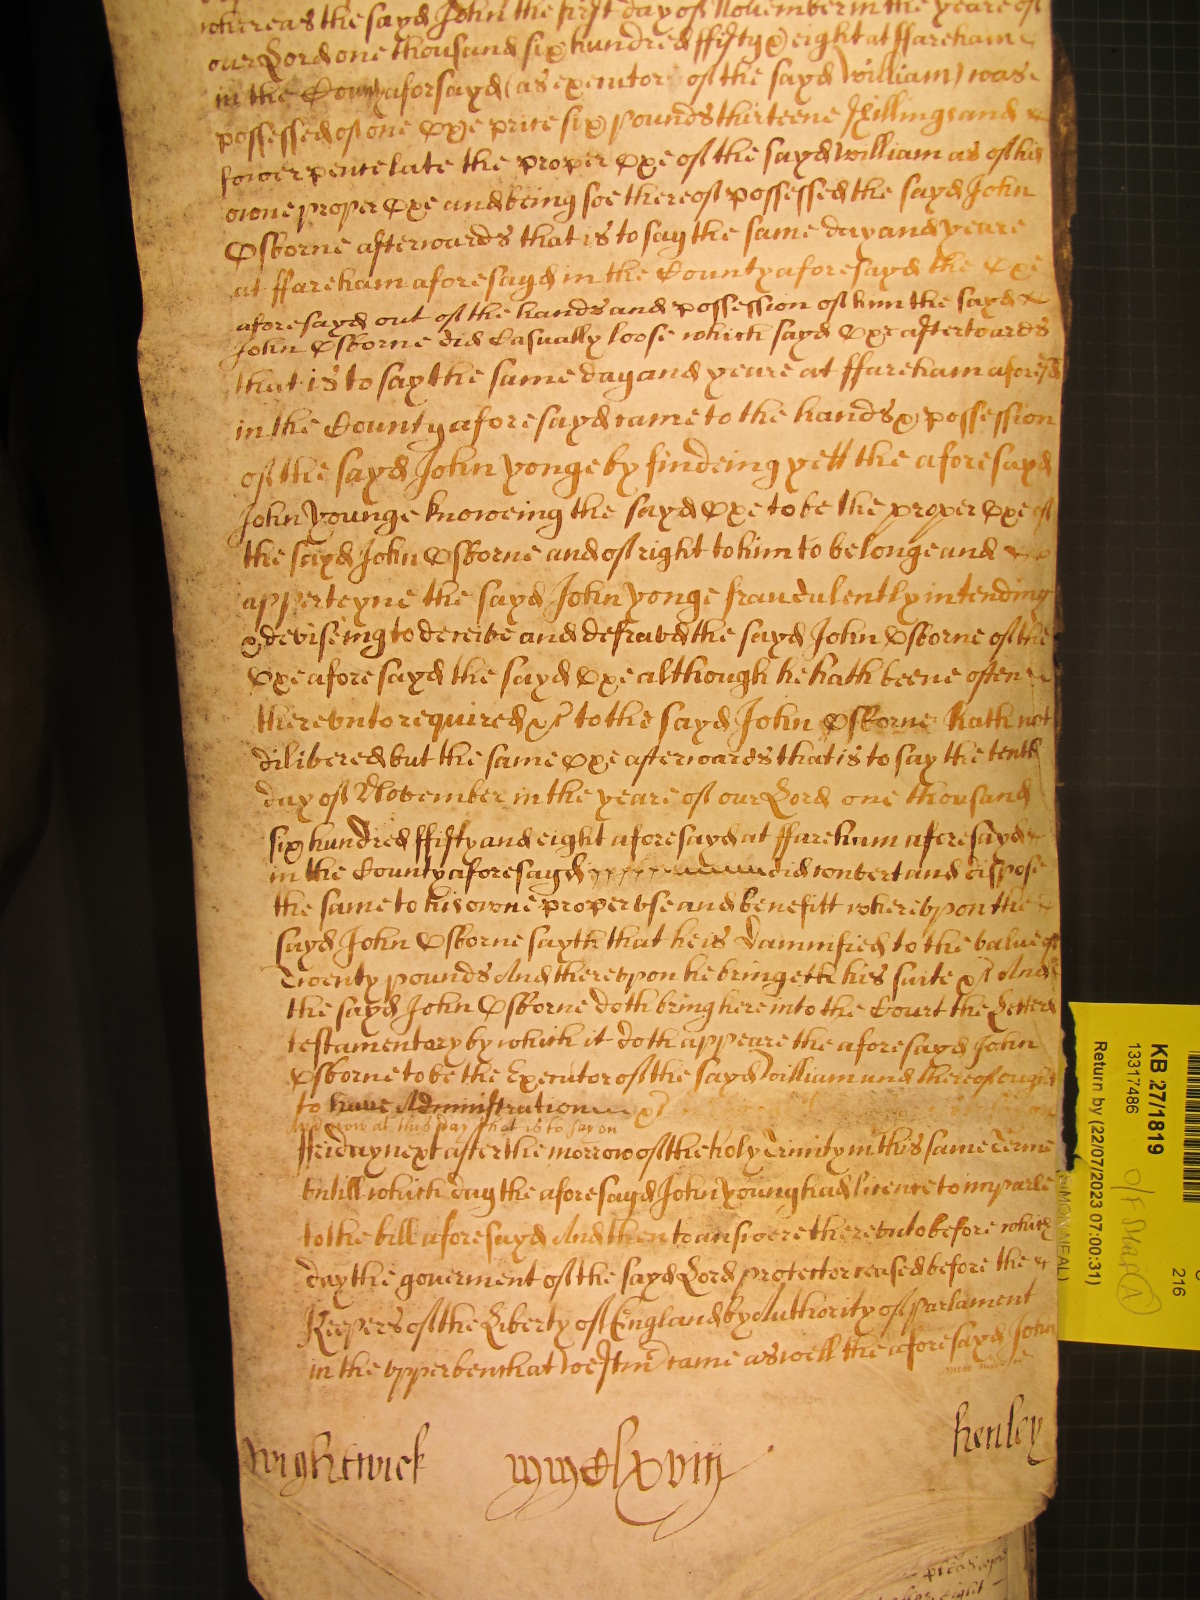 whereas the sayd John the first day of November in the yeare of
our Lord one thousand six hundred ffifty & eight at ffareham
in the County aforsayd (as executor of the sayd William) was
possessed of one Oxe price six pounds thirteene shillings and
fower pence late the proper Oxe of the sayd William as of his
owne proper Oxe and being soe thereof possessed the sayd John
Osborne afterwards that is to say the same day and yeare
at ffareham aforesayd in the County aforesayd the Oxe
aforesayd out of the hands and possession of him the sayd
John Osborne did Casually loose which sayd Oxe afterwards
that is to say the same day and yeare at ffareham aforesd
in the County aforesayd came to the hands & possession
of the sayd John yonge by findeing yett the aforesayd
John younge knoweing the sayd Oxe to be the proper Oxe of
the sayd John Osborne and of right to him to belonge and
apperteyne the sayd John yonge fraudulently intending
& deviseing to deceive and defraud the sayd John Osborne of the
Oxe aforesayd the sayd Oxe although he hath beene often
therevnto required &c to the sayd John Osborne hath not
dilibered but the same Oxe afterwards that is to say the tenth
day of November in the yeare of our Lord one thousand
six hundred ffifty and eight aforesayd at ffareham aforesayd
in the County aforesayd did convert and dispose
the same to his owne proper vse and benefitt wherevpon the
sayd John Osborne sayth that he is damnified to the value of
Twenty pounds And therevpon he bringeth his suite &c And
the sayd John Osborne doth bring here into the Court the Letters
testamentory by which it doth appeare the aforesayd John
Osborne to be the Executor of the sayd William and thereof ought
to have Administration &c
And now at this day that is to say on
ffriday next after the morrow of the holy Trinity in this same Terme
vntill which day the aforesayd John Young had licence to imparle
to the bill aforesayd And then to answere therevnto before which
day the goverment of the sayd Lord protector ceased before the
Keepers of the Liberty of England by Authority of parlament
in the vpper bench at Westmr came as well the aforesayd John
Wightwick
mmclxviij
henley
KB 27/1819
13317486
Return by (22/07/2023 07:00:31)
216